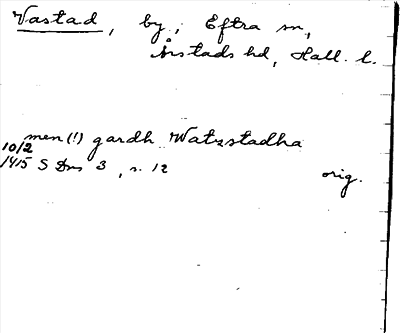 Vastad, by, Eftra sn,
Årstads hd, Hall. l.
men(!) gardh Watzstadha
10/2
1415 S Dns 3, s. 12
orig.